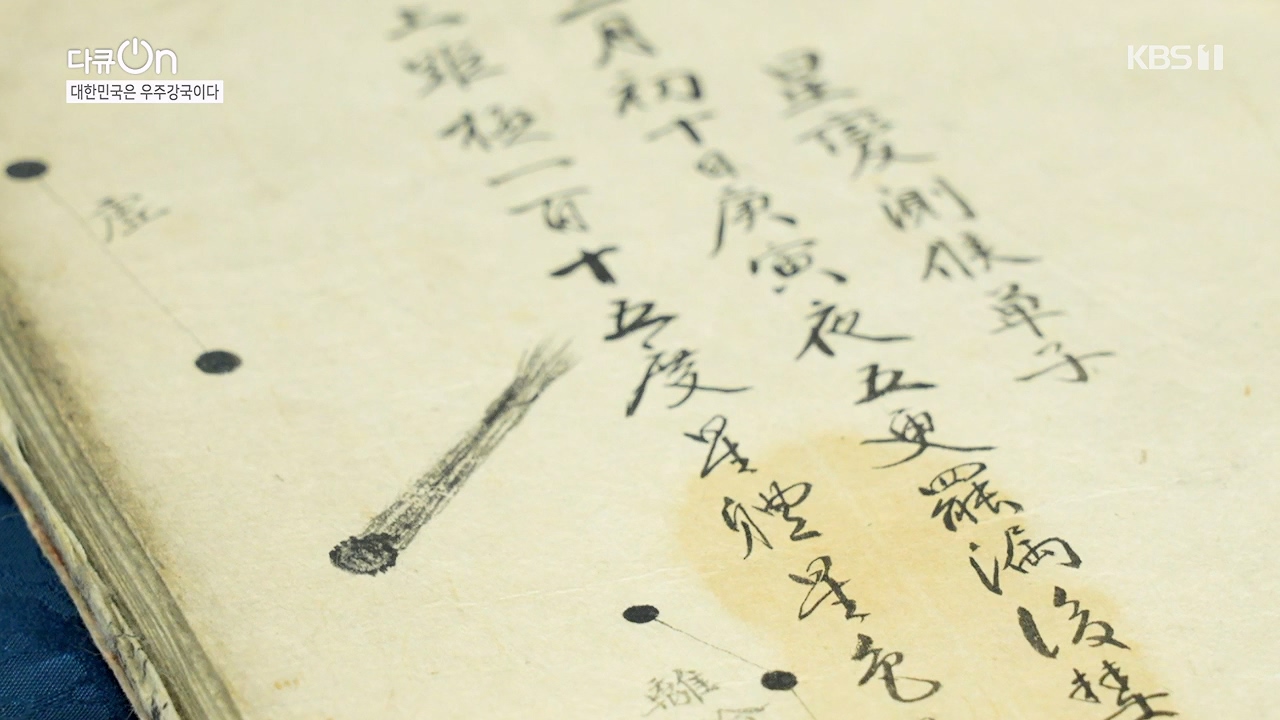 다큐On
대한민국은 우주강국이다
KBS 1
星變測候單子
月初十日庚寅夜五更罷漏後彗
上距極一百十五度星體星色
虛
離